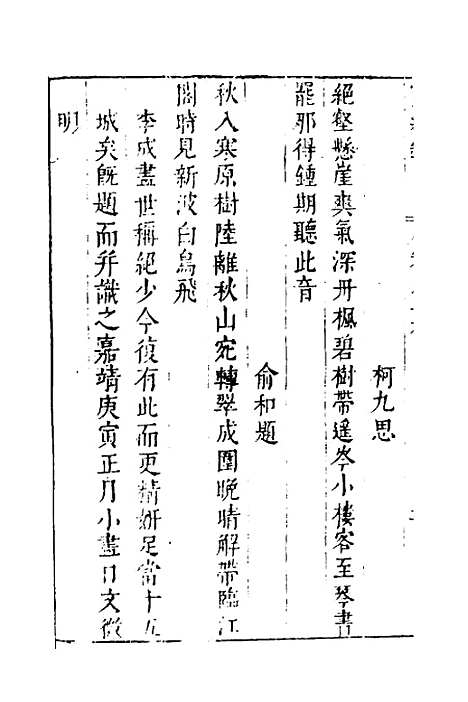 柯九思
絕壑懸崖爽氣深丹楓碧樹帶遥岑小樓客至琴書
罷那得鍾期聽此音
俞和題
秋入寒原樹陸離秋山宛轉翠成圍晚晴解帶臨江
閣時見新波白鳥飛
李成畫世稱絕少今復有此而更精妍足當十五
城矣旣題而并識之嘉靖庚寅正月小晝日文徵
明